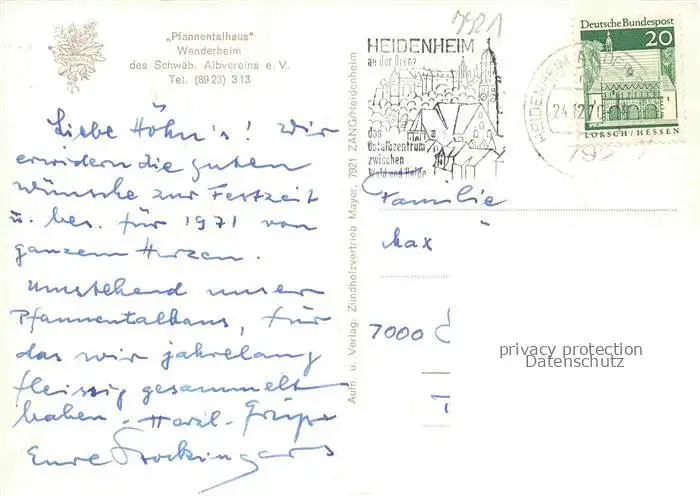 „Pfannentalhaus"
Wanderheim
des Schwäb. Albvereins e. V.
Tel. (89 23) 3 13
Liebe Höhn's! Wir
erwidern die guten
Wünsche zur Festzeit
u. bes. für 1971 von
ganzem Herzen.
Umstehend unser
Pfannentalhaus, für
das wir jahrelang
fleissig gesammelt
haben. Herzl. Grüße
Eure Stockingers
Aufn. u. Verlag: Zündholzvertrieb Mayer, 7921 ZANG/Heidenheim
7921
HEIDENHEIM
an der Brenz
das
Ostalbzentrum
zwischen
Wald und Heide
HEIDENHEIM AN DER
24.12.70
792
Deutsche Bundespost
20
LORSCH/HESSEN
Familie
Max
7000
privacy protection
Datenschutz